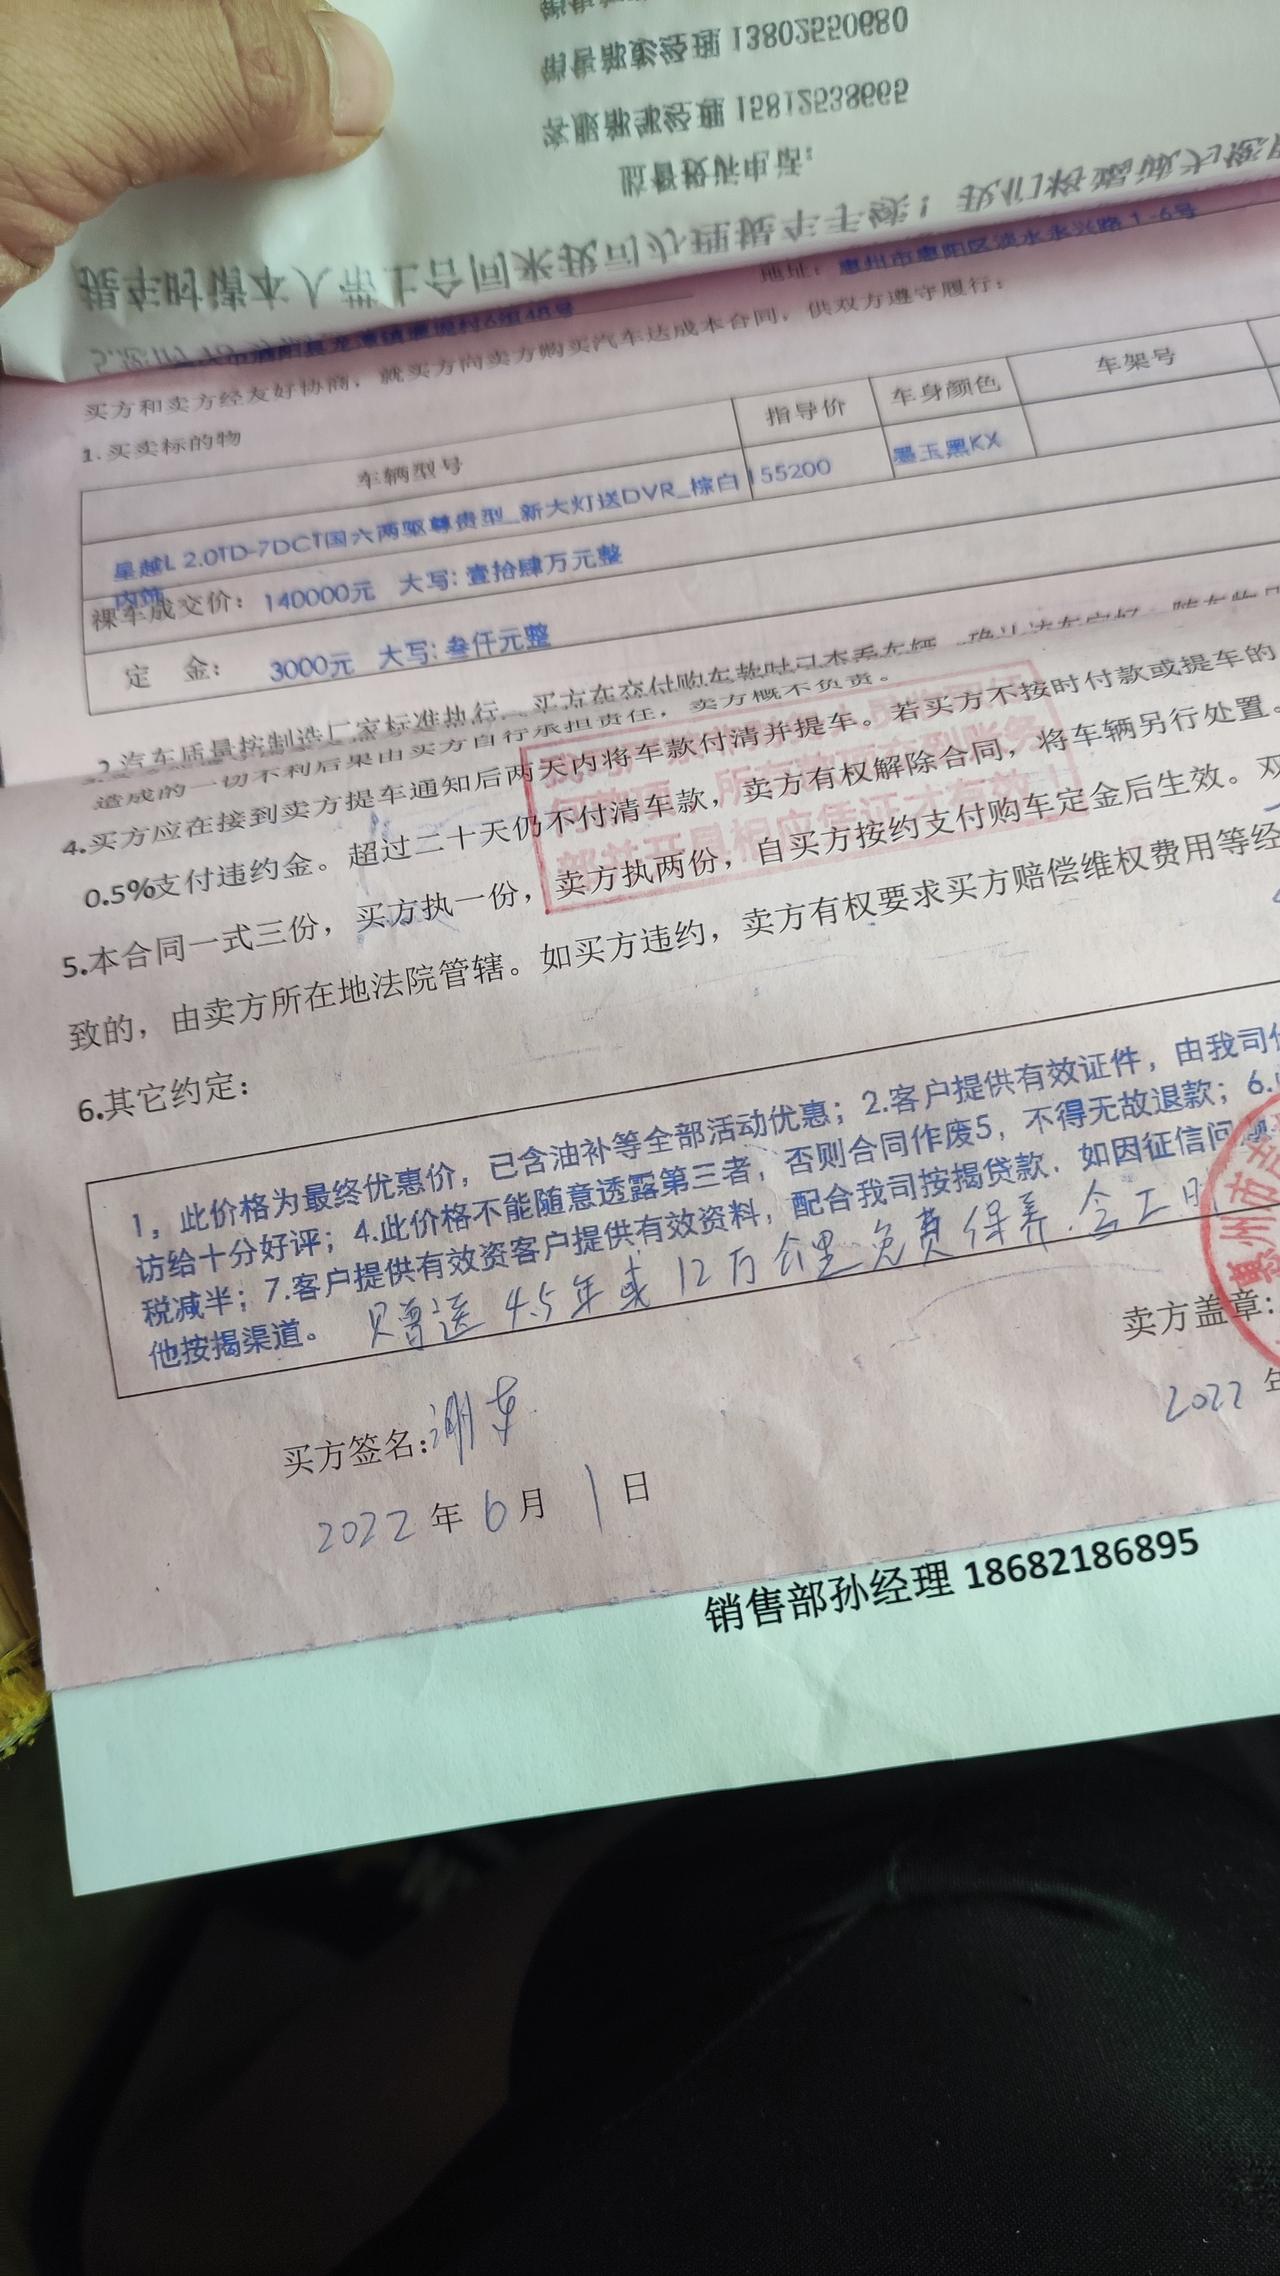 销售部彭经理 13802550680
客服部邹经理 15812538665
监督投诉电话：
提车时请本人带上合同来我司办理提车手续！我们将竭诚为您
地址：惠州市惠阳区淡水永兴路 1-6号
村6组48号
买方和卖方经友好协商，就买方向卖方购买汽车达成本合同，供双方遵守履行：
1.买卖标的物
车辆型号 指导价 车身颜色 车架号
星越L 2.0TD-7DCT国六两驱尊贵型_新大灯送DVR_棕白 155200 墨玉黑KX
内饰
裸车成交价： 140000元 大写: 壹拾肆万元整
定 金： 3000元 大写: 叁仟元整
2.汽车质量按制造厂家标准执行。买方在交付购车款时已查看车辆，确认该车完好，随车物
造成的一切不利后果由买方自行承担责任，卖方概不负责。
4.买方应在接到卖方提车通知后两天内将车款付清并提车。若买方不按时付款或提车的
0.5%支付违约金。超过二十天仍不付清车款，卖方有权解除合同，将车辆另行处置。
5.本合同一式三份，买方执一份，卖方执两份，自买方按约支付购车定金后生效。双
致的，由卖方所在地法院管辖。如买方违约，卖方有权要求买方赔偿维权费用等经
部并开具相应凭证才有效
6.其它约定：
1，此价格为最终优惠价，已含油补等全部活动优惠；2.客户提供有效证件，由我司
访给十分好评；4.此价格不能随意透露第三者，否则合同作废5，不得无故退款；6.
税减半；7.客户提供有效资客户提供有效资料，配合我司按揭贷款．如因征信问
他按揭渠道。 赠送 4.5年或 12万公里免费保养.含工时
卖方盖章：
惠州
买方签名：
2022 年
2022 年 6 月 1 日
销售部孙经理 18682186895